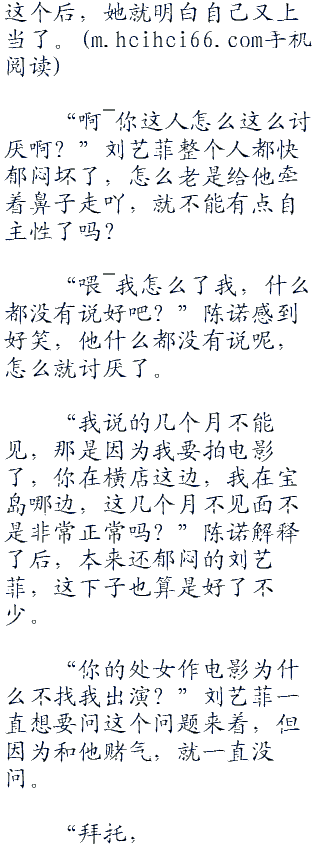 这个后，她就明白自己又上
当了。(m.hcihci66.com手机
阅读)
“啊ˉ你这人怎么这么讨
厌啊？”刘艺菲整个人都快
郁闷坏了，怎么老是给他牵
着鼻子走吖，就不能有点自
主性了吗？
“喂ˉ我怎么了我，什么
都没有说好吧？”陈诺感到
好笑，他什么都没有说呢，
怎么就讨厌了。
“我说的几个月不能
见，那是因为我要拍电影
了，你在横店这边，我在宝
岛哪边，这几个月不见面不
是非常正常吗？”陈诺解释
了后，本来还郁闷的刘艺
菲，这下子也算是好了不
少。
“你的处女作电影为什
么不找我出演？”刘艺菲一
直想要问这个问题来着，但
因为和他赌气，就一直没
问。
“拜托，